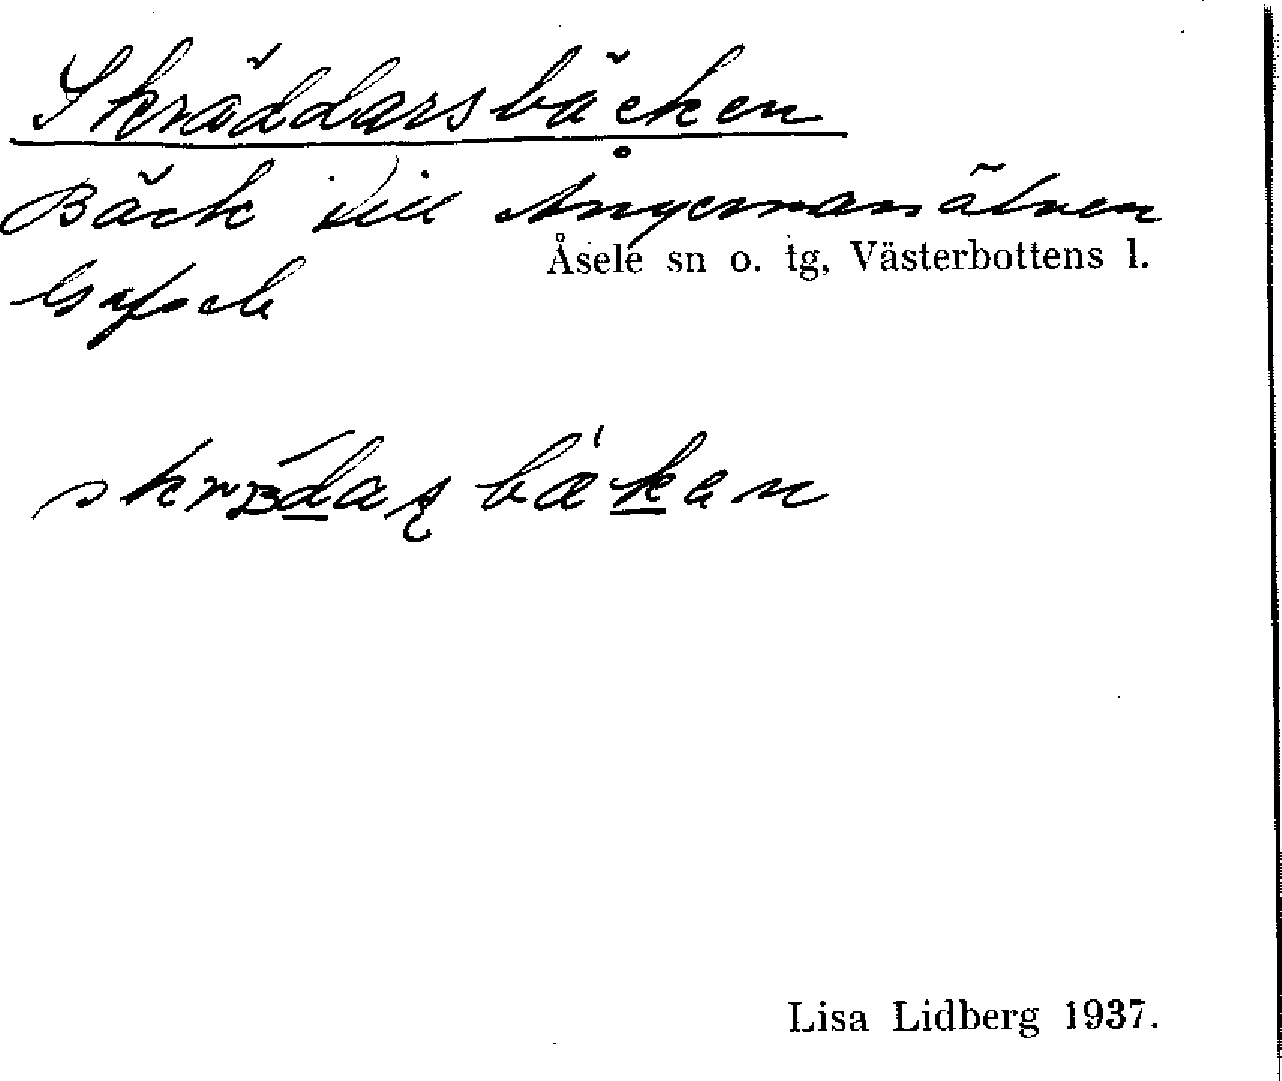 Skräddarsbäcken
Bäck till Ångermanälven
Åsele sn o. tg, Västerbottens l.
Gafsele
bækan
Lisa Lidberg 1937.